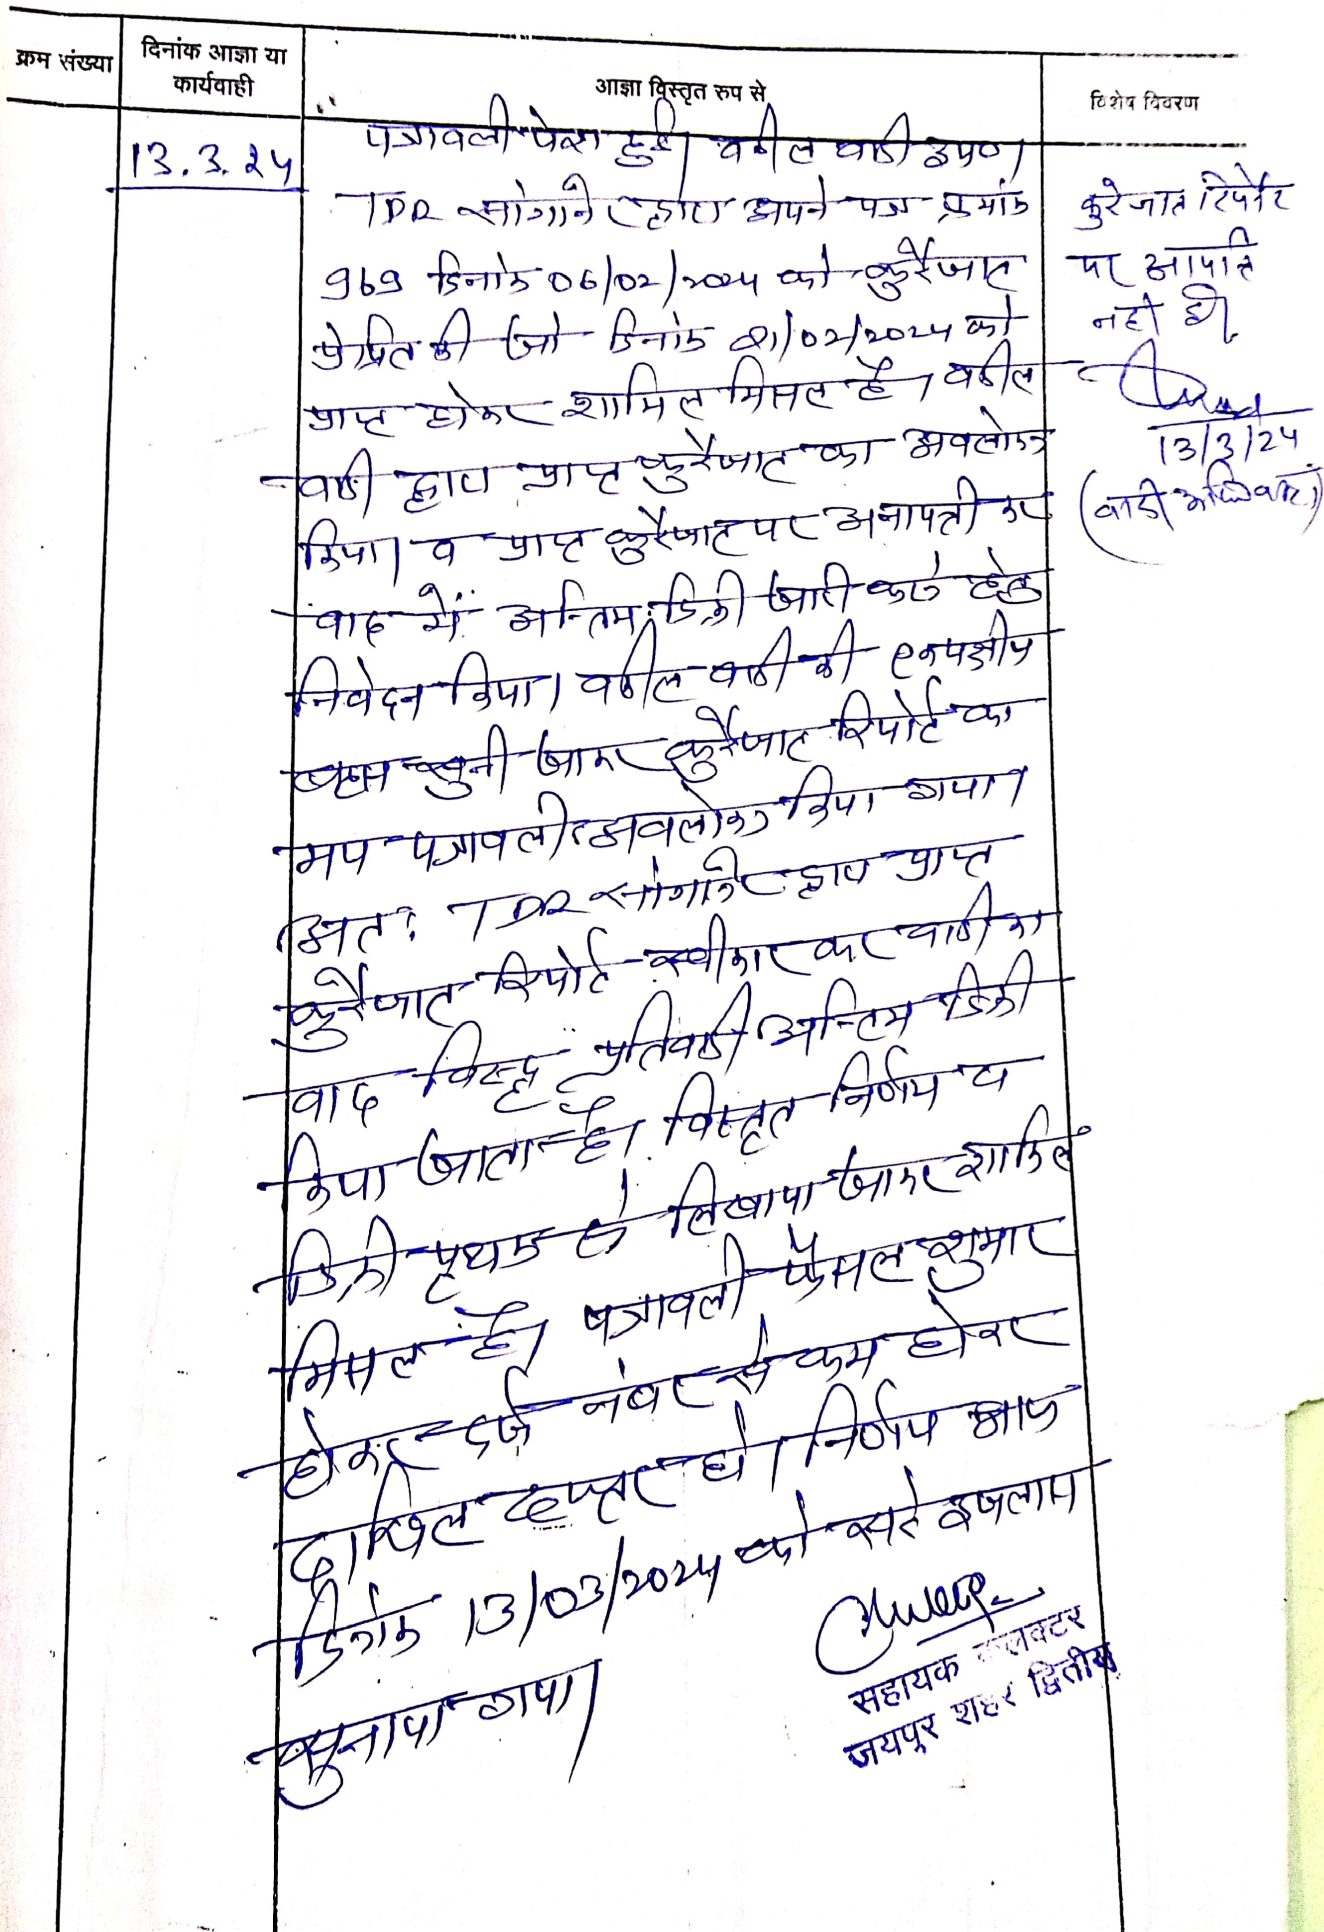 क्रम संख्या
दिनांक आज्ञा या
कार्यवाही
आज्ञा विस्तृत रुप से
विशेष विवरण
13.3.24
पत्रावली पेश हुई। वकील वादी उप०।
TDR सांगानेर द्वारा अपने पत्र क्रमांक
969 दिनांक 06/02/2024 को कुर्रेजात
प्रेषित की जो दिनांक 21/02/2024 को
प्राप्त होकर शामिल मिसल है। वकील
वादी द्वारा प्राप्त कुर्रेजात का अवलोकन
किया। व प्राप्त कुर्रेजात पर अनापत्ती कर
वाद में अन्तिम डिक्री जारी करने हेतु
निवेदन किया। वकील वादी की एकपक्षीय
बहस सुनी जाकर कुर्रेजात रिपोर्ट का
मय पत्रावली अवलोकन किया गया।
अतः TDR सांगानेर द्वारा प्राप्त
कुर्रेजात रिपोर्ट स्वीकार कर वादी का
वाद विरुद्ध प्रतिवादी अन्तिम डिक्री
किया जाता है। विस्तृत निर्णय व
डिक्री पृथक से लिखाया जाकर शामिल
मिसल है। पत्रावली फैसल शुमार
होकर दर्ज नंबर से कम होकर
दाखिल दफ्तर हो। निर्णय आज
दिनांक 13/03/2024 को सरे इजलास
सुनाया गया।
कुरेजात रिपोर्ट
पर आपत्ति
नही है।
13/3/24
(वादी अधिवक्ता)
सहायक कलक्टर
जयपुर शहर द्वितीय